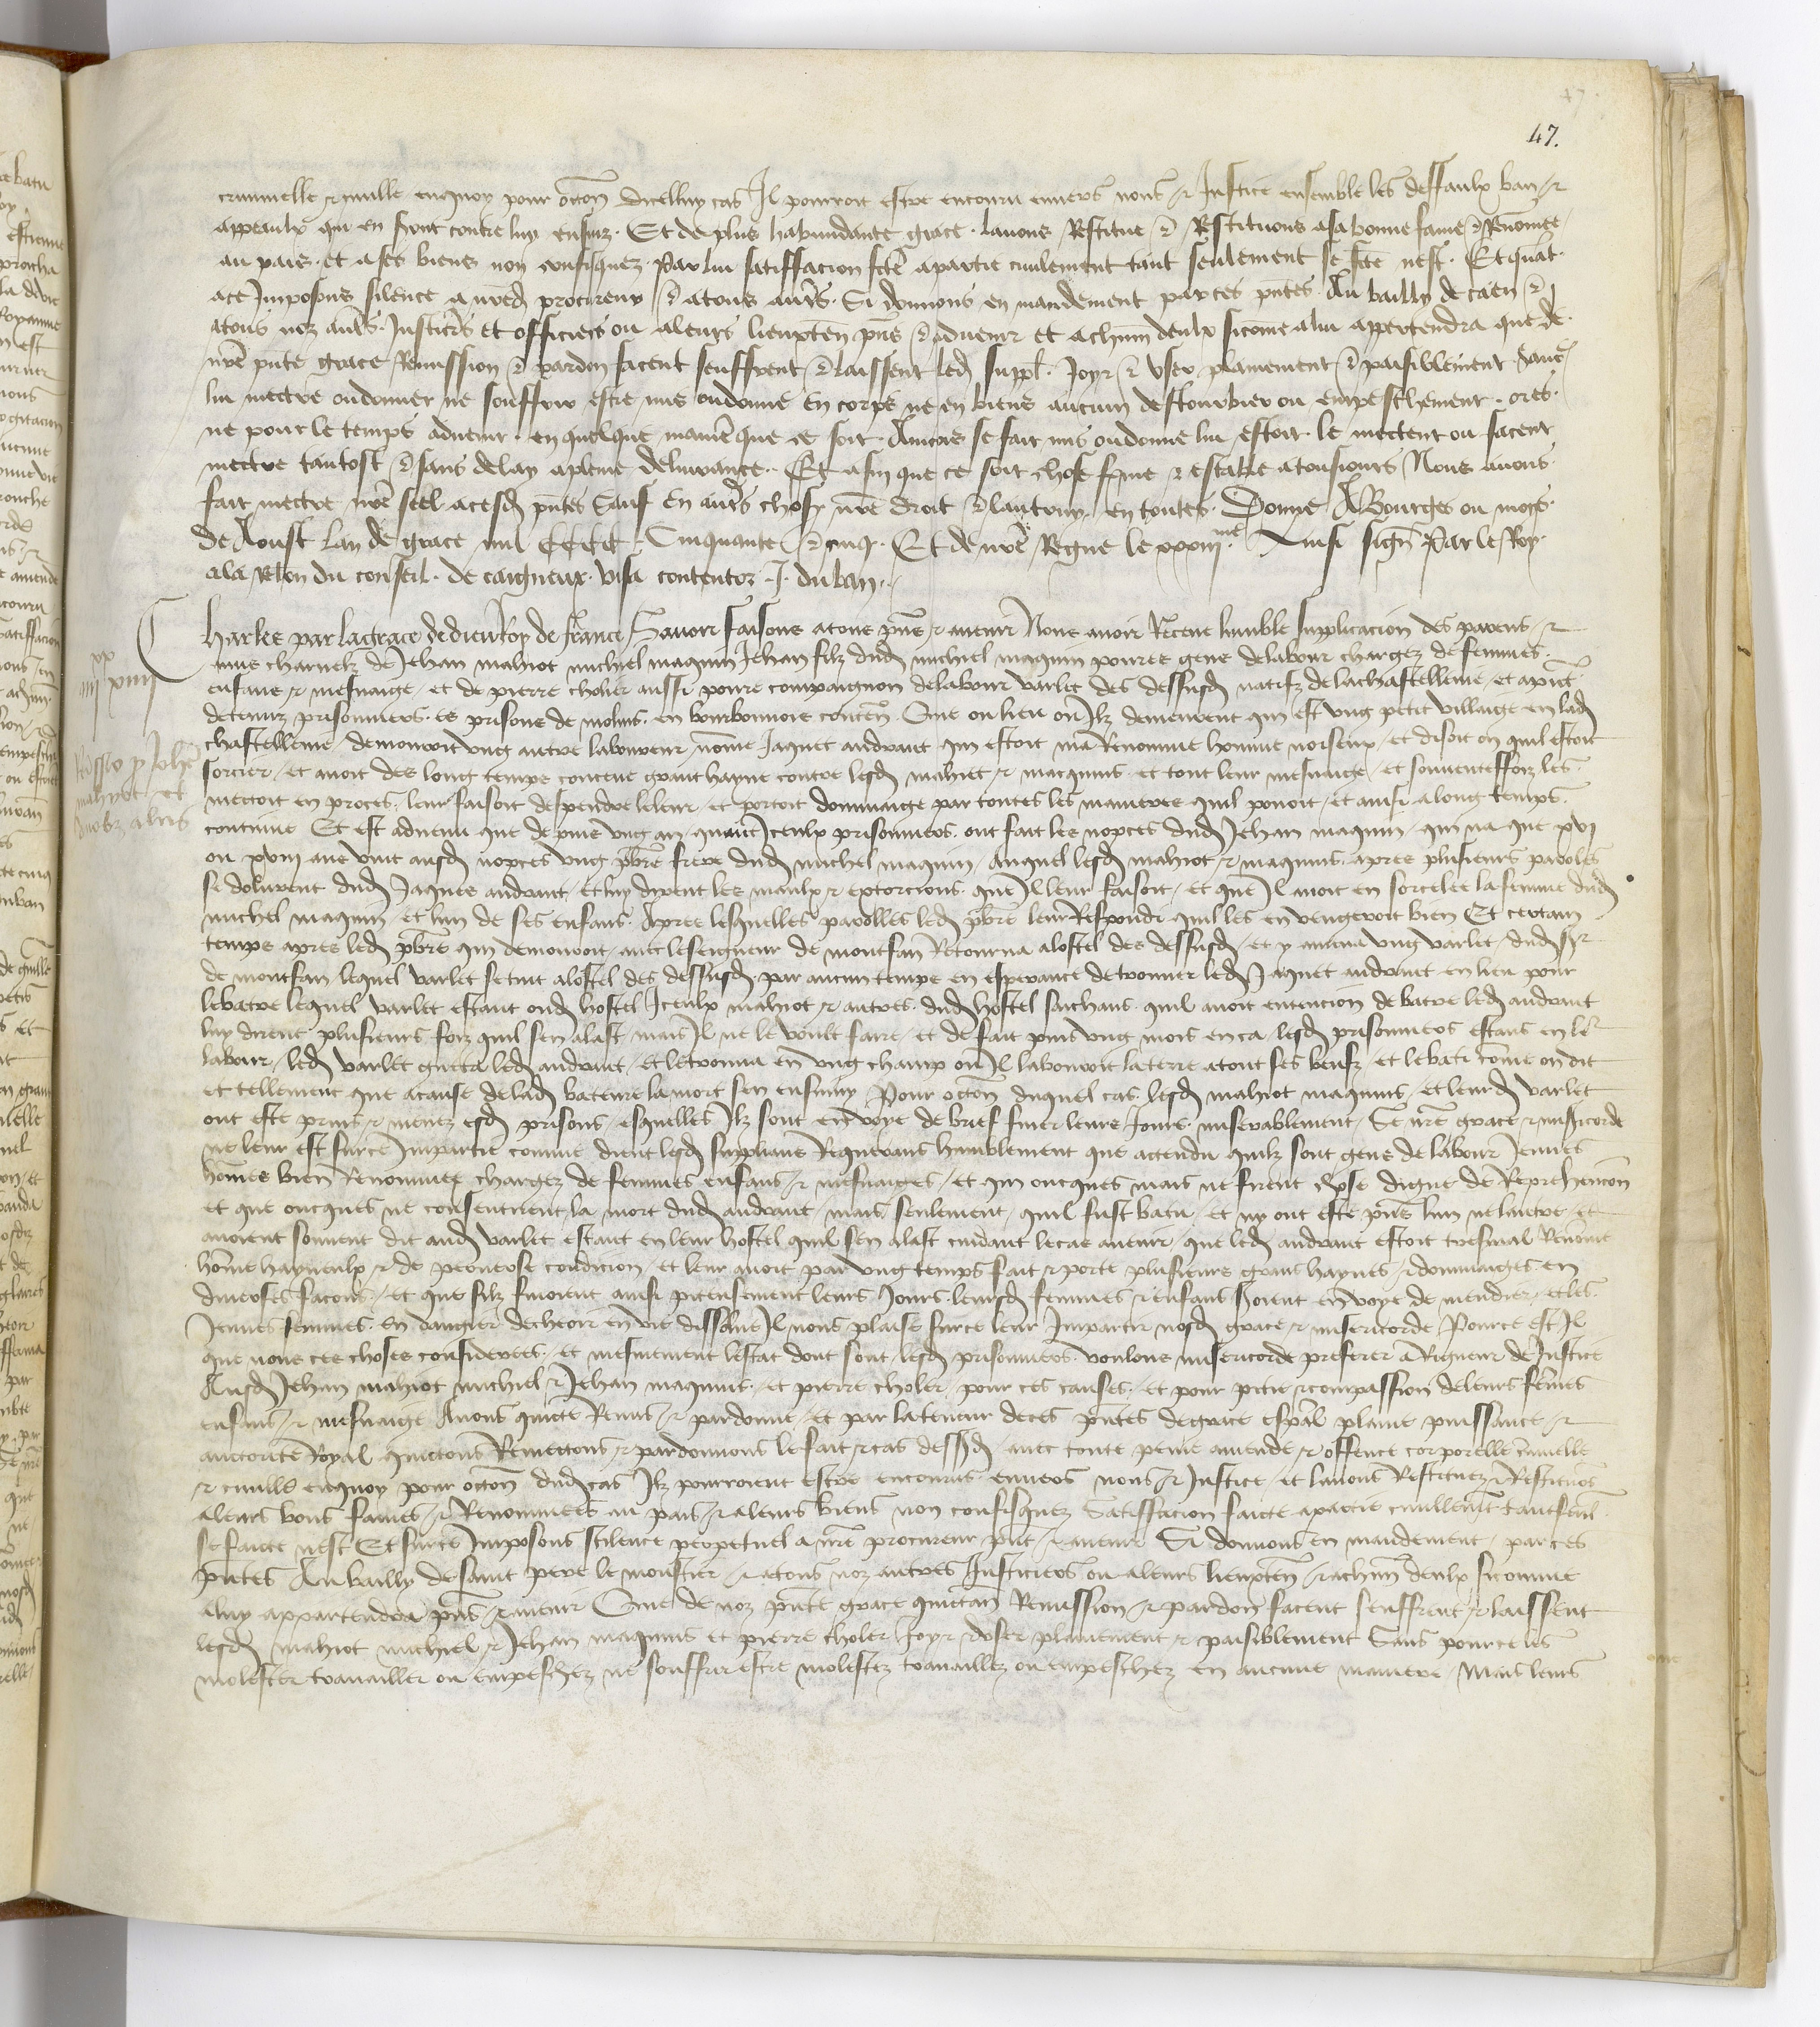 47.
criminelle & civille enquoy pour occōn dicelluy cas Il pourroit estre encouru envers nous & Justice ensemble les deffaulx ban &
appeaulx qui en sont contre luy ensuiz. Et de plus habundante grace. lavons Restitué & Restituons a sa bonne fame & Renōmee
au pais. et a ses biens non confisquez. Par lui satiffacion fcte a partie civilement tant seulement se fcte nest. Et quāt
a ce Imposons silence a nr̄ed procureur & a tous autr̄s. Si donnons en mandement par ces pn̄tes. Au bailly de caen &
a tous noz autr̄s Justicrs et officiers ou a leurs lieuxten pn̄s & advenir et a chūn deulx sicōme a lui appertendra que de
nr̄e pn̄te grace Remission & pardon facent seuffrent & laissent led suppl. Joyr & User plainement & paisiblement sans
lui mectre ou donner ne souffrir estre mis ou donné En corps ne en biens aucun destourbier ou empeschement. ores
ne pour le temps advenir. en quelque manier̄ que ce soit. Aincois se fait mis ou donne lui estoit. le mectent ou facent
mectre tantost & sans delay a pleine delivrance. Et afin que ce soit chose ferme & estable a tousiours Nous avons
fait mectre nr̄e seel a cesd pn̄tes Sauf En autr̄s choses nr̄e droit & lautruy en toutes. Donné A Bourges ou mois
de Aoust Lan de grace mil CCCC Cinquante & cinq. Et de nr̄e Regne le xxxiii me Ainsi signé Par le Roy
a la Relon du conseil. de caigneux. visa contentor J. duban.
Charles par la grace de dieu Roy de france Savoir faisons a tous pn̄s & avenir Nous avoir Receue humble supplicacion des parens &
amis charnelz de Jehan mahiot michiel maquin Jehan filz dud michiel maquin povres gens de labour chargez de femmes
iiii xx xviii
enfans & mesnaige et de pierre cholier aussi povre compaignon de labour varlet des dessusd natifz de la chastellenie et a pn̄t
detenuz prisonniers es prisons de molins en bourbonnois conten̄. Que ou lieu ou Ilz demeurent qui est ung petit villaige en lad
chastellenie demouroit ung autre laboureur nōmé Jaquet audvant qui estoit mal Renommé homme noiseux et disoit on quil estoit
Remissio p Joh̄e mahyot et duobz aliis
sorcier et avoit des long temps conceue grant hayne contre lesd mahiot & maquins et tout leur mesnaige et souventeffoiz les
mectoit en proces leur faisoit despendre le leur et portoit dommaige par toutes les manieres quil povoit et ainsi a long temps
continué Et est advenu que depuis ung an quant Iceulx prisonniers ont fait les nopces dud Jehan maquin qui na que xvi
ou xvii ans vint ausd nopces ung pbr̄e frere dud michel maquin auquel lesd mahiot & maquins apres plusieurs paroles
se dolurent dud Jaques audvant et luy dirent les maulx & extorcions que Il leur faisoit et que Il avoit en sorcelee la femme dud
michel maquin et lun de ses enfans. Apres lesquelles parolles led pbr̄e leur Respondi quil les en vengeroit bien Et certain
temps apres led pbr̄e qui demouroit avec le seigneur de montfan Retourna a lostel des dessusd et y amena ung varlet dud sr
de montfan lequel varlet se tint a lostel des dessusd par aucun temps en esperance de trouver led Jaquet audvant en lieu pour
le batre lequel varlet estant oud hostel Iceulx mahiot & autres dud hostel saichans quil avoit entencion de batre led audvant
luy dirent plusieurs foiz quil sen alast mais Il ne le voult faire et de fait puis ung mois en ca lesd prisonniers estans en lr̄
labour led varlet guetta led audvant et le trouva en ung champ ou Il labouroit la terre a tout ses beufz et le bati cōme on dit
et tellement que a cause de lad bateure la mort sen ensuivy Pour occōn duquel cas lesd mahiot maquins et leurd varlet
ont esté prins & menez esd prisons esquelles Ilz sont en voye de brief finer leurs Jours miserablement Se nr̄e grace & misicorde
ne leur est sur ce Impartie comme dient lesd supplians Requerans humblement que actendu quilz sont gens de labour Jeunes
hōmes bien Renommez chargez de femmes enfans & mesnaiges et qui oncques mais ne firent chose digne de Reprehencōn
et que oncques ne consentirent la mort dud audvant mais seulement quil fust batu et ny ont esté pn̄s lun ne lautre et
avoient souvent dit aud varlet estant en leur hostel quil sen alast cuidant le cas avenir que led audvant estoit tresmal Renōmé
hōme hayneulx & de perverse condicion et leur avoit par ung temps fait & porté plusieurs grans haynes & dommaiges en
diverses facons et que silz finoient ainsi piteusement leurs Jours leursd femmes & enfans seroient en voye de mendier et les
Jeunes femmes en dangier decheoir en vie dissolue Il nous plaise sur ce leur Impartir nosd grace & misericorde Pource est Il
que nous ces choses considerees et mesmement lestat dont sont lesd prisonniers voulons misericorde preferer a Rigueur de Justice
Ausd Jehan mahiot michiel & Jehan maquins et pierre cholier pour ces causes et pour pitié & compassion de leurs fem̄es
enfans & mesnaige Avons quicté Remis & pardonné et par la teneur de ces pn̄tes de grace esp̄al plaine puissance &
auctorité Royal quictons Remectons & pardonnons le fait & cas dessusd avec toute peine amende & offence corporelle criminelle
& civille enquoy pour occōn dud cas Ilz pourroient estre encourus envers nous & Justice et lavons Restituez & Restituōs
a leurs bons fames & Renommees au pais & a leurs biens non confisquez Satisfacion faicte a partie civillemēt tant seul
se faicte nest Et sur ce Imposons scilence perpetuel a nr̄e procureur pn̄t & avenir Si donnons en mandement par ces
pn̄tes Au bailly de saint pere le moustier & a tous noz autres Justiciers ou a leurs lieuxten̄ & a chūn deulx sicomme
a luy appartendra pn̄s & avenir Que de noz pn̄te grace quictan̄ Remission & pardon facent seuffrent & laissent
lesd mahiot michiel & Jehan maquins et pierre cholier Joyr & user plainement & paisiblement Sans pource les
molester travailler ou empeschez ne souffrir estre molestez travaillez ou empeschez en aucune maniere Mais leurs